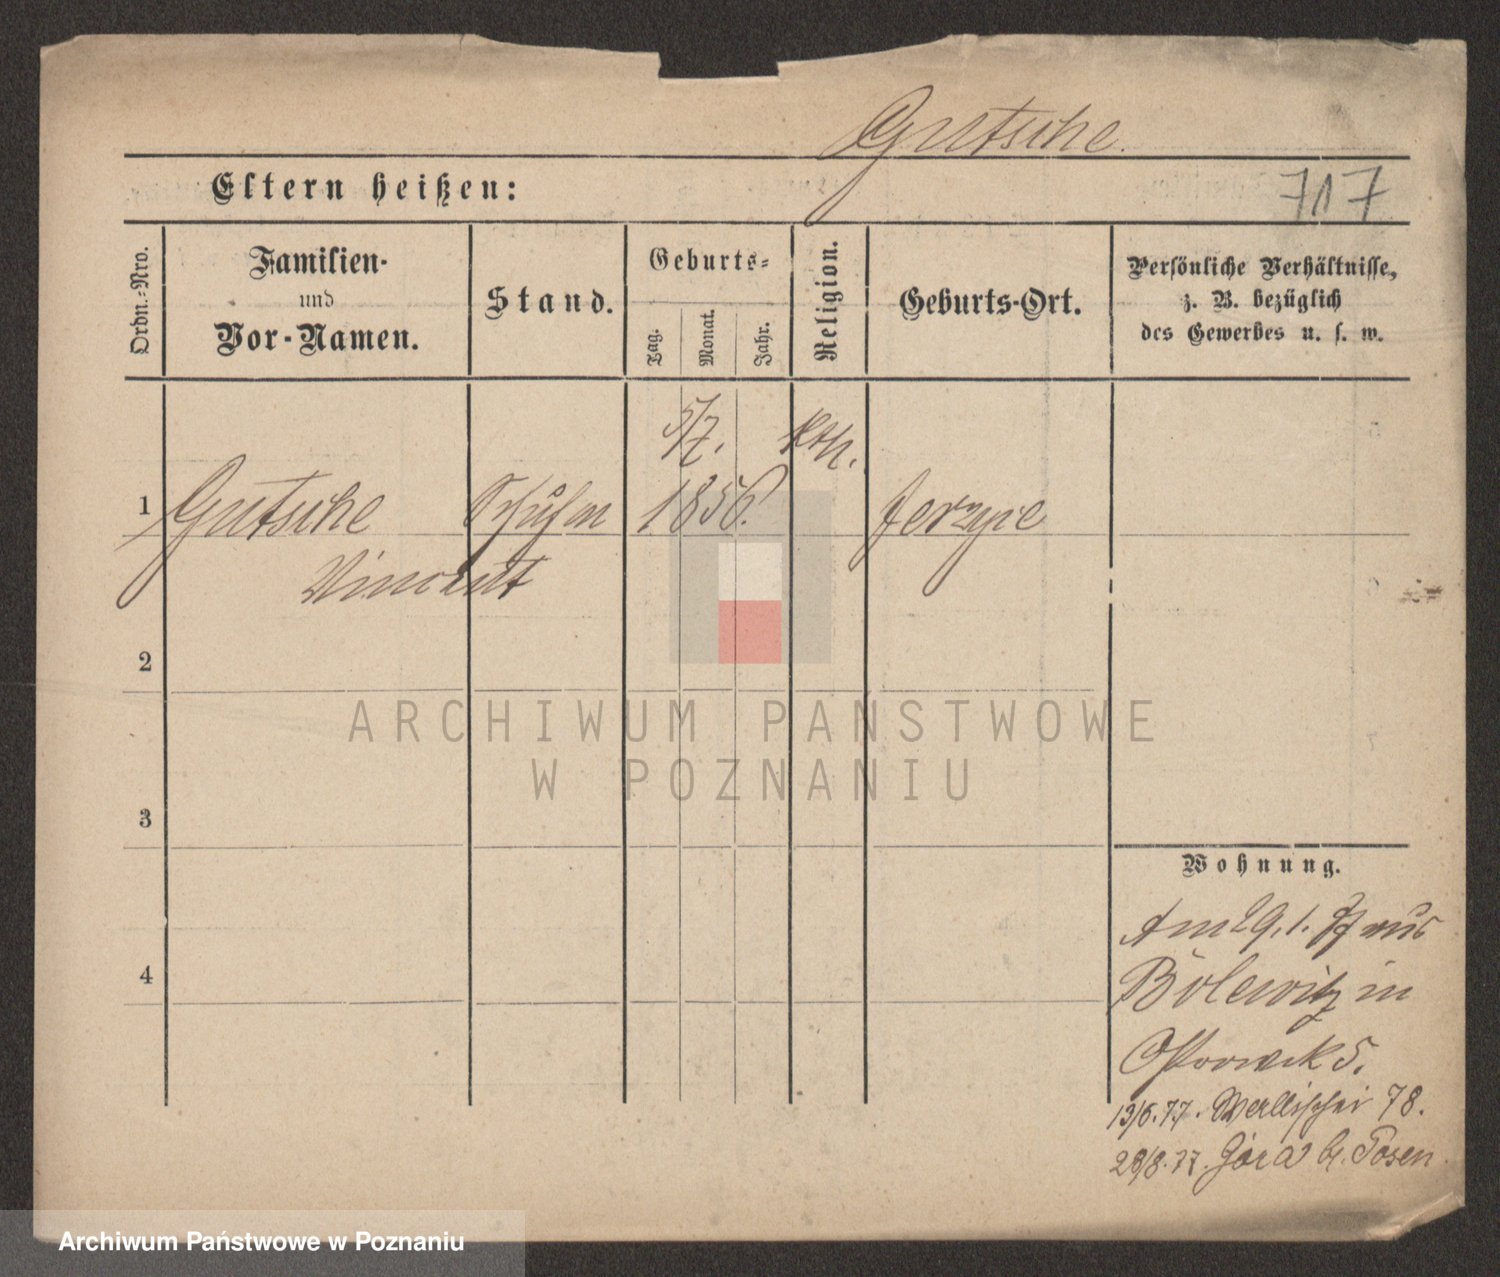 Gutsche.
Eltern heißen:
717
Ordn.-Nro.
Familien-
und
Vor-Namen.
Stand.
Geburts-
Tag.
Monat.
Jahr.
Religion.
Geburts-Ort.
Persönliche Verhältnisse,
z. B. bezüglich
des Gewerbes u. s. w.
5/7. kth.
1 Gutsche Schuhm 1856. Jerzyce
Vincent
2
ARCHIWUM PAŃSTWOWE
W POZNANIU
3
Wohnung.
Am 29.1.77 aus
Bolewitz in
Ostrowek 5.
4
13/6.77. Wallischei 78.
28/8.77. Góra b. Posen
Archiwum Państwowe w Poznaniu